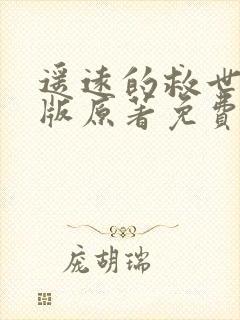 遥远的救世
版原著免费
庞胡瑞